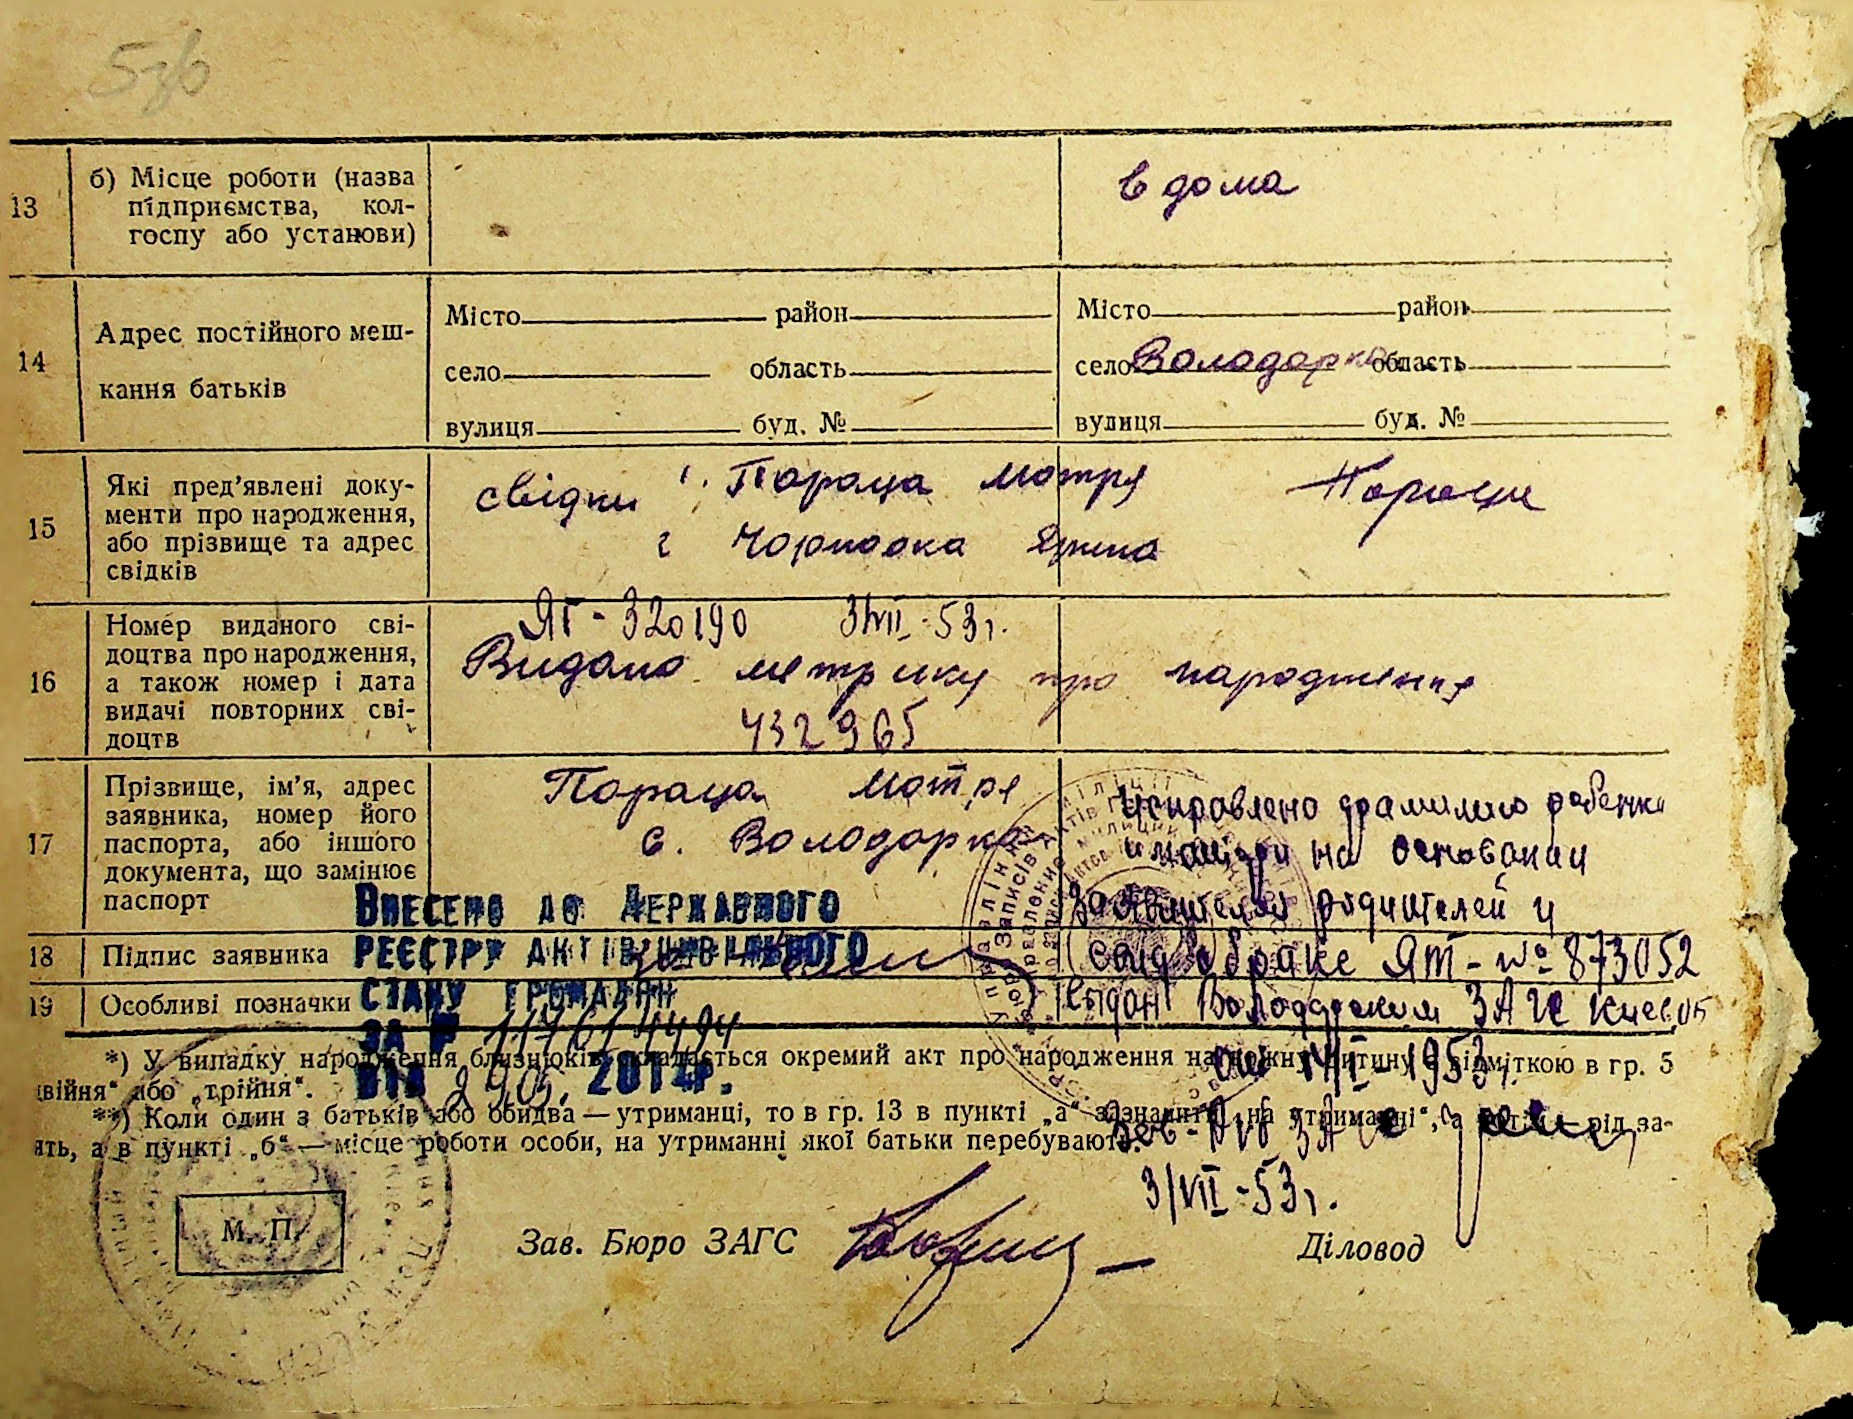 13
б) Місце роботи (назва
підприємства, кол-
госпу або установи)
в дома
14
Адрес постійного меш-
кання батьків
Місто район
село область
вулиця буд. №
Місто район
село Володарка область
вулиця буд. №
15
Які пред’явлені доку-
менти про народження,
або прізвище та адрес
свідків
свідки Мотря
16
Номер виданого сві-
доцтва про народження,
а також номер і дата
видачі повторних сві-
доцтв
ЯГ-320190 3/VII-53г.
Видано метрику про народження
432965
17
Прізвище, ім’я, адрес
заявника, номер його
паспорта, або іншого
документа, що замінює
паспорт
Мотря
с. Володарка
Исправлено фамилию ребенка
и матери на основании
Заявителей родителей и
свид о браке ЯТ-№ 873052
выдан Володарским ЗАГС Киев. об
1953г.
ЗАГС
3/VII-53г.
18
Підпис заявника
19
Особливі позначки
Внесено до Державного
реєстру актів цивільного
стану громадян
за №
від 2014р.
*) У випадку народження близнюків складається окремий акт про народження на кожну дитину з відміткою в гр. 5
„двійня“ або „трійня“.
**) Коли один з батьків або обидва — утриманці, то в гр. 13 в пункті „а“ зазначити „на утриманні“, а потім — рід за-
ять, а в пункті „б“ — місце роботи особи, на утриманні якої батьки перебувають.
М. П.
Зав. Бюро ЗАГС
Діловод